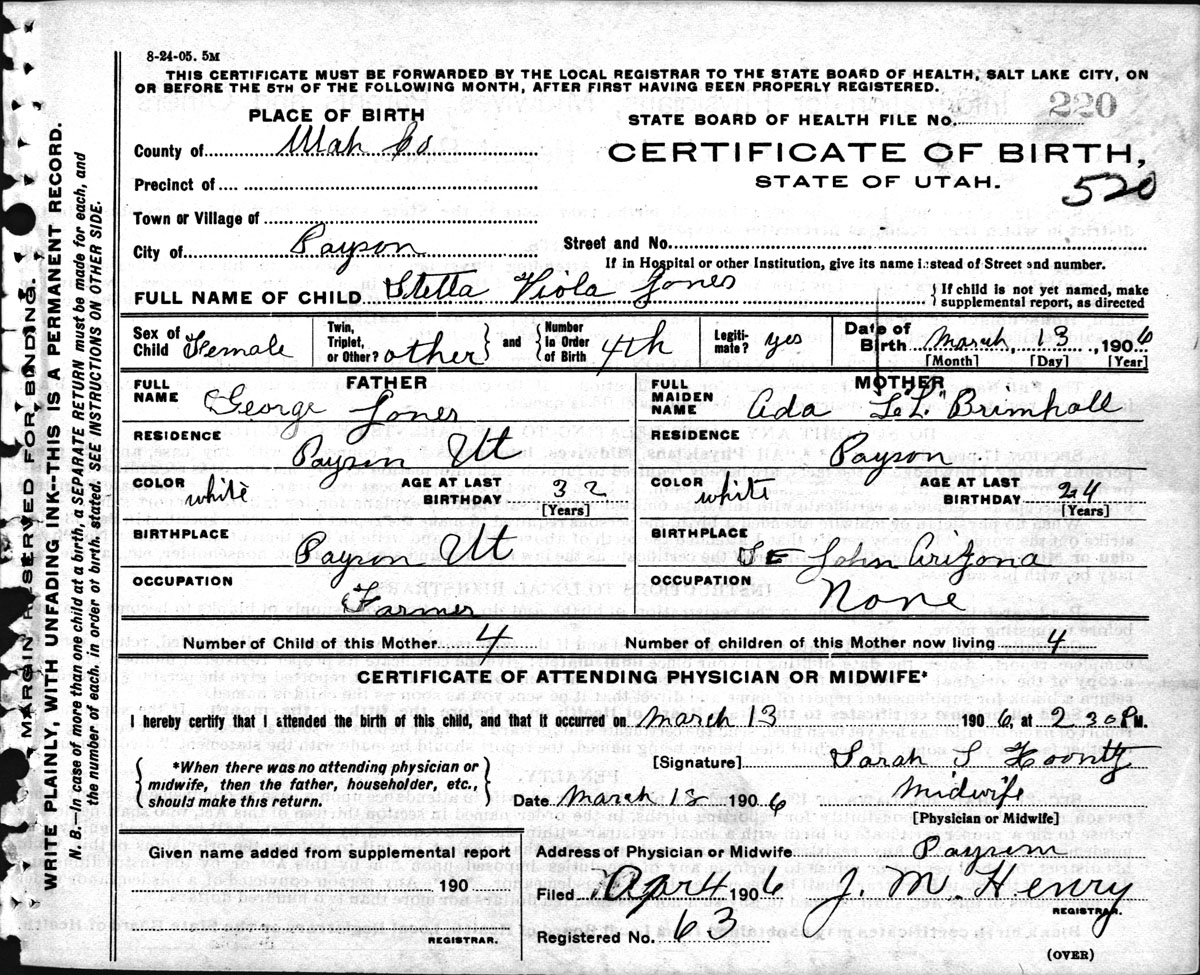 8-24-05. 5M
THIS CERTIFICATE MUST BE FORWARDED BY THE LOCAL REGISTRAR TO THE STATE BOARD OF HEALTH, SALT LAKE CITY, ON
OR BEFORE THE 5TH OF THE FOLLOWING MONTH, AFTER FIRST HAVING BEEN PROPERLY REGISTERED.
PLACE OF BIRTH
STATE BOARD OF HEALTH FILE No. 220
County of Utah Co
CERTIFICATE OF BIRTH,
STATE OF UTAH.
520
Precinct of
Town or Village of
City of Payson
Street and No.
If in Hospital or other Institution, give its name instead of Street and number.
FULL NAME OF CHILD Stella Viola Jones
{ If child is not yet named, make
supplemental report, as directed
Sex of Child Female
Twin, Triplet, or Other? other } and { Number in Order of Birth 4th
Legitimate? yes
Date of Birth March, 13, 1906
[Month] [Day] [Year]
FATHER
FULL NAME George Jones
RESIDENCE Payson Ut
COLOR white AGE AT LAST BIRTHDAY 32
[Years]
BIRTHPLACE Payson Ut
OCCUPATION Farmer
MOTHER
FULL MAIDEN NAME Ada "LL" Brimhall
RESIDENCE Payson
COLOR white AGE AT LAST BIRTHDAY 24
[Years]
BIRTHPLACE John Arizona
OCCUPATION None
Number of Child of this Mother 4 Number of children of this Mother now living 4
CERTIFICATE OF ATTENDING PHYSICIAN OR MIDWIFE*
I hereby certify that I attended the birth of this child, and that it occurred on March 13 1906 at 2 30 P M.
{ *When there was no attending physician or
midwife, then the father, householder, etc.,
should make this return. }
[Signature] Sarah S
Date March 1906 Midwife
[Physician or Midwife]
Given name added from supplemental report
190
REGISTRAR.
Address of Physician or Midwife Payson
Filed Apr 4, 1906 J. M. Henry
REGISTRAR.
Registered No. 63
(OVER)
MARGIN RESERVED FOR BINDING.
WRITE PLAINLY, WITH UNFADING INK--THIS IS A PERMANENT RECORD.
N. B.—In case of more than one child at a birth, a SEPARATE RETURN must be made for each, and
the number of each, in order of birth, stated. SEE INSTRUCTIONS ON OTHER SIDE.